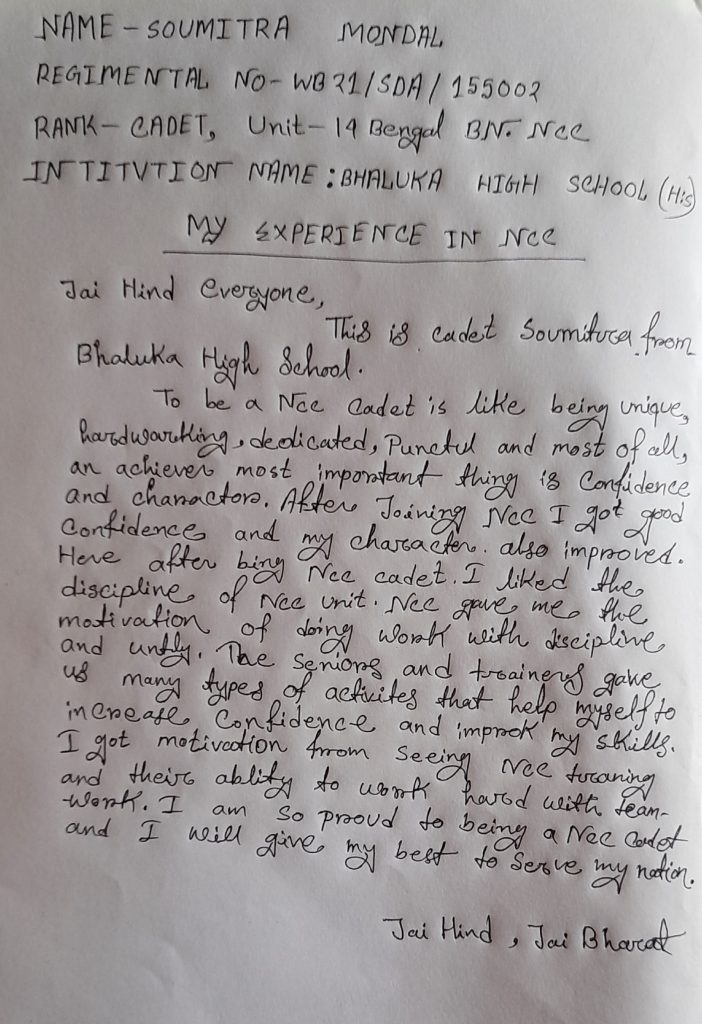 NAME - SOUMITRA MONDAL
REGIMENTAL NO- WB21/SDA/155002
RANK- CADET, Unit- 14 Bengal BN. NCC
INTITUTION NAME : BHALUKA HIGH SCHOOL (HS)
MY EXPERIENCE IN NCC
Jai Hind Everyone,
This is cadet Soumitra from
Bhaluka High School.
To be a NCC Cadet is like being unique,
hardwarking, dedicated, Punctul and most of all,
an achiever most important thing is Confidence
and charactor. After Joining NCC I got good
Confidence and my character. also improved.
Here after bing NCC cadet. I liked the
discipline of NCC unit. NCC gave me the
motivation of doing work with discipline
and untly. The Seniors and trainers gave
us many types of activites that help myself to
increase Confidence and improk my skills.
I got motivation from seeing NCC traning
and their ablity to work hard with team-
work. I am so proud to being a NCC Cadet
and I will give my best to serve my nation.
Jai Hind, Jai Bharat